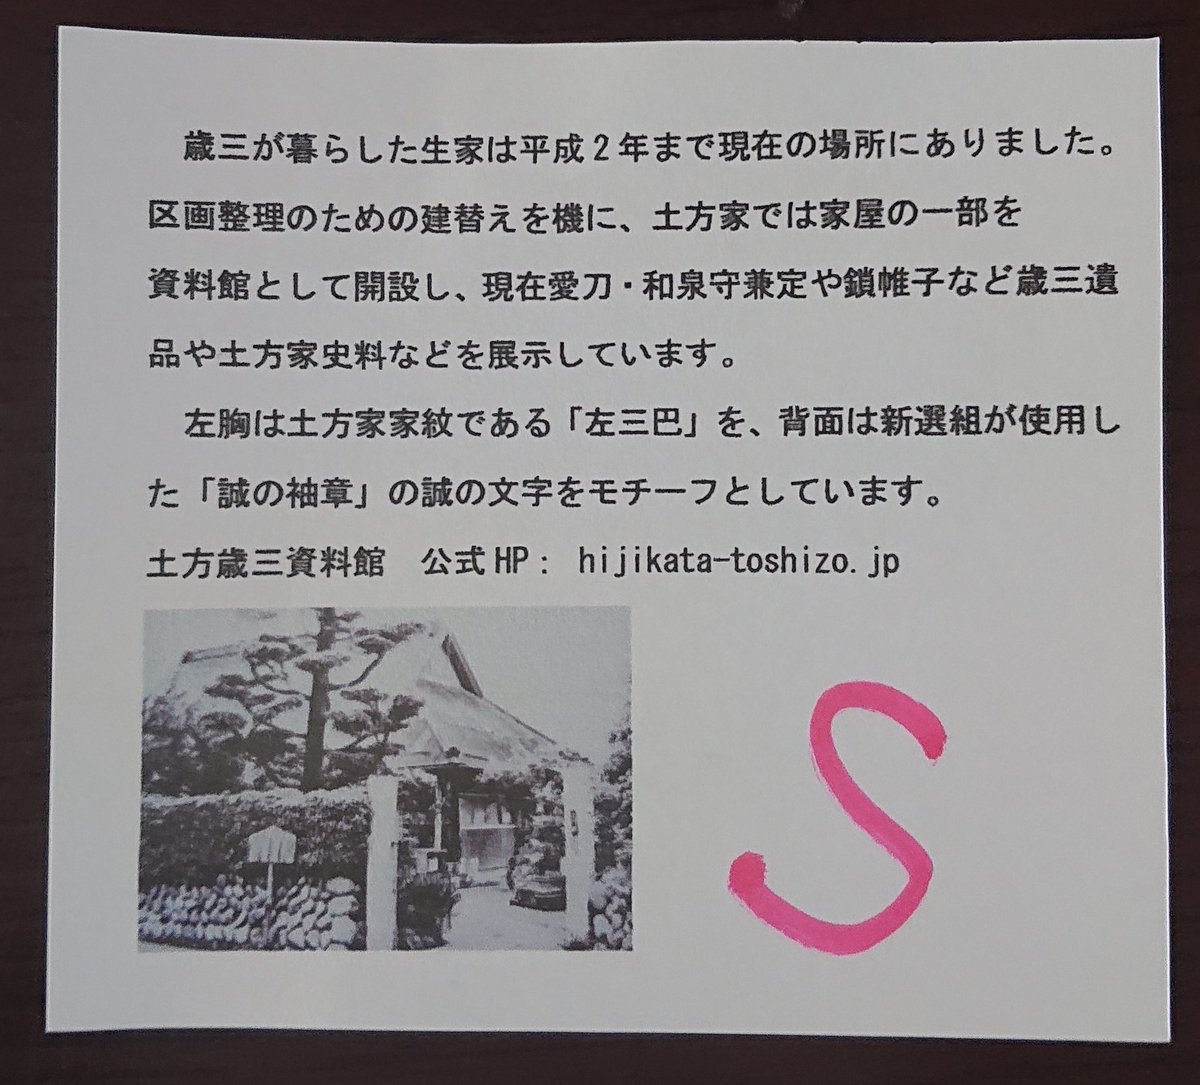 歳三が暮らした生家は平成2年まで現在の場所にありました。
区画整理のための建替えを機に、土方家では家屋の一部を
資料館として開設し、現在愛刀・和泉守兼定や鎖帷子など歳三遺
品や土方家史料などを展示しています。
左胸は土方家家紋である「左三巴」を、背面は新選組が使用し
た「誠の袖章」の誠の文字をモチーフとしています。
土方歳三資料館 公式HP： hijikata-toshizo.jp
S